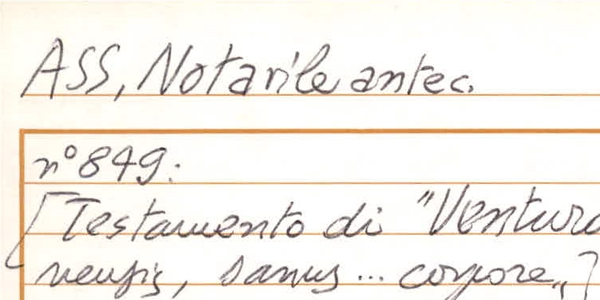 ASS, Notarile antec.
n° 849:
[Testamento di "Ventura
nensis, sanus ... corpore"]